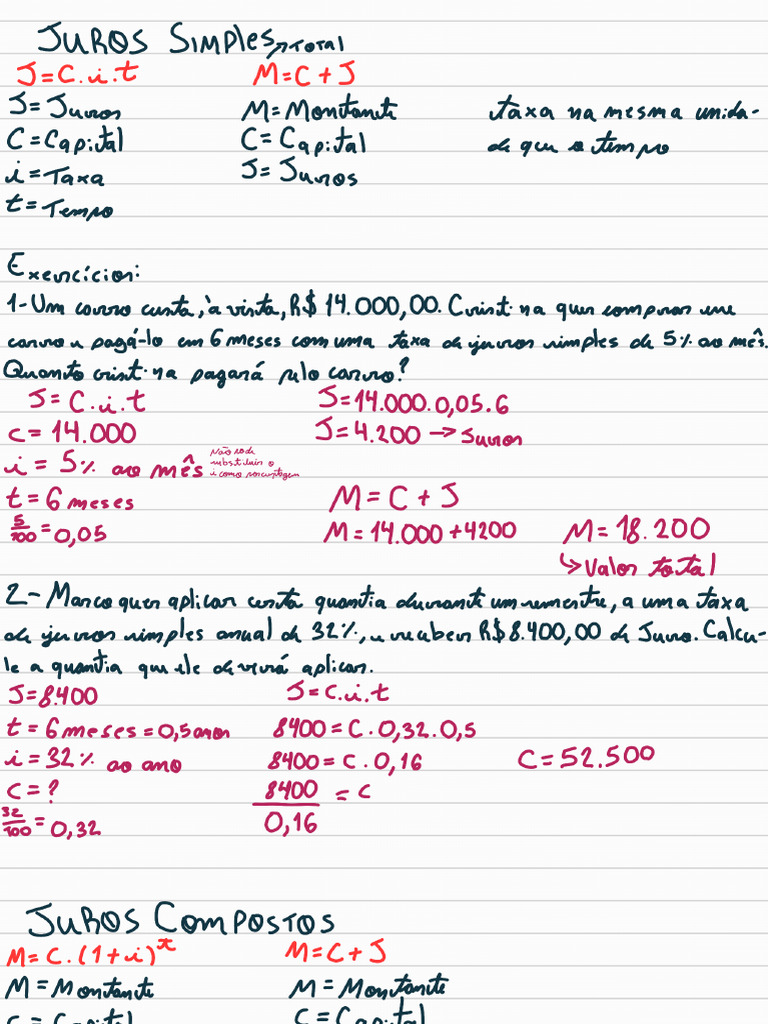 JUROS SIMPLES
↗TOTAL
J=C.i.t
M=C+J
J=Juros
M=Montante
taxa na mesma unida-
C=Capital
C=Capital
de que o tempo
i=Taxa
J=Juros
t=Tempo
Exercícios:
1-Um carro custa, à vista, R$ 14.000,00. Cristina quer comprar esse
carro e pagá-lo em 6 meses com uma taxa de juros simples de 5% ao mês.
Quanto Cristina pagará pelo carro?
J=C.i.t
J=14.000.0,05.6
C=14.000
J=4.200→Juros
i=5% ao mês
Não pode
substituir o
i como porcentagem
t=6 meses
M=C+J
5/100=0,05
M=14.000+4200
M=18.200
↳Valor total
2-Marco quer aplicar certa quantia durante um semestre, a uma taxa
de juros simples anual de 32%, e receber R$8.400,00 de Juro. Calcu-
le a quantia que ele deverá aplicar.
J=8.400
J=C.i.t
t=6 meses=0,5 anos
8400=C.0,32.0,5
i=32% ao ano
8400=C.0,16
C=52.500
C=?
8400/0,16=C
32/100=0,32
JUROS COMPOSTOS
M=C.(1+i)^t
M=C+J
M=Montante
M=Montante
C=Capital
C=Capital